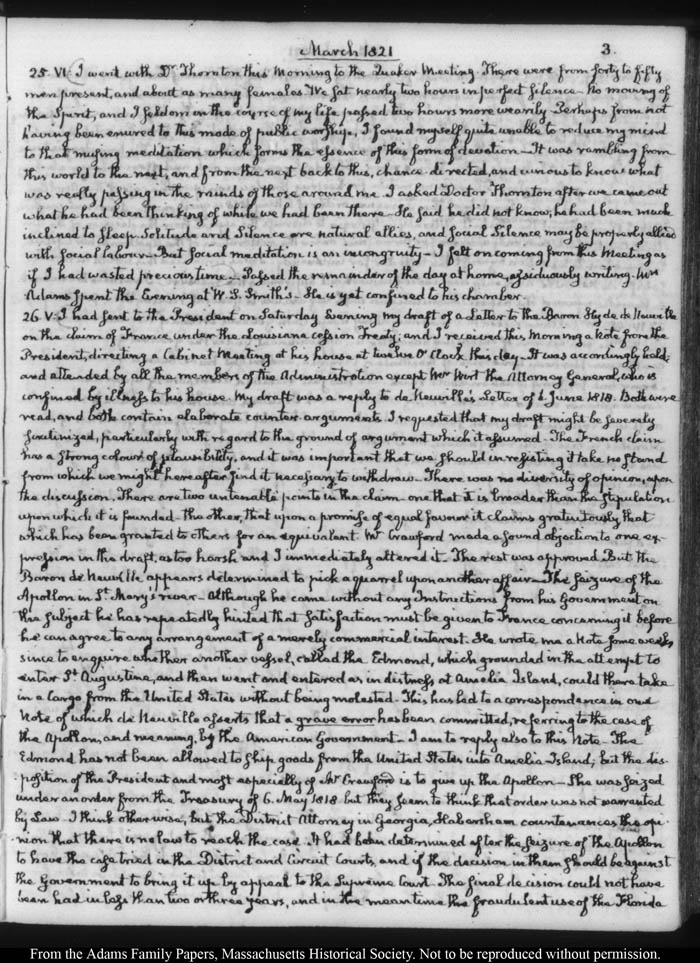 March 1821
3.
25. VI. I went with Dr. Thornton this Morning to the Quaker Meeting. There were from forty to fifty
men present, and about as many females. We sat nearly two hours in perfect silence - No moving of
the Spirit, and I seldom in the course of my life passed two hours more wearily - Perhaps from not
having been enured to this mode of public worship, I found myself quite unable to reduce my mind
to that musing meditation which forms the essence of this form of devotion - It was rambling from
this world to the next, and from the next back to this, chance-directed, and curious to know what
was really passing in the minds of those around me. I asked Doctor Thornton after we came out
what he had been thinking of while we had been there - He said he did not know; he had been much
inclined to sleep. Solitude and Silence are natural allies, and social Silence may be properly allied
with social labour - But social meditation is an incongruity - I felt on coming from this Meeting as
if I had wasted precious time - Passed the remainder of the day at home, assiduously writing. Mrs
Adams spent the Evening at W. S. Smith's - He is yet confined to his chamber.
26. V. I had sent to the President on Saturday Evening my draft of a Letter to the Baron Hyde de Neuville
on the claim of France under the Louisiana cession Treaty; and I received this Morning a Note from the
President, directing a Cabinet Meeting at his house at twelve O'Clock this day - It was accordingly held;
and attended by all the members of the Administration except Mr Wirt the Attorney General, who is
confined by illness to his house. My draft was a reply to de Neuville's Letter of June 1818. Both were
read, and both contain elaborate counter-arguments. I requested that my draft might be severely
scrutinized, particularly with regard to the ground of argument which it assumed - The French claim
has a strong colour of plausibility, and it was important that we should in resisting it take no stand
from which we might hereafter find it necessary to withdraw - There was no diversity of opinion, upon
the discussion. There are two untenable points in the claim - one that it is broader than the stipulation
upon which it is founded - the other, that upon a promise of equal favour it claims gratuitously that
which has been granted to others for an equivalent. Mr Crawford made a sound objection to one ex-
pression in the draft, as too harsh and I immediately altered it - The rest was approved. But the
Baron de Neuville appears determined to pick a quarrel upon another affair - The seizure of the
Apollon in St. Mary's river - Although he came without any Instructions from his Government on
the subject he has repeatedly hinted that satisfaction must be given to France concerning it before
he can agree to any arrangement of a merely commercial interest. He wrote me a Note some weeks
since to enquire whether another vessel, called the Edmond, which grounded in the attempt to
enter St. Augustine, and then went and entered as in distress at Amelia Island, could there take
in a Cargo from the United States without being molested. This has led to a correspondence in one
Note of which de Neuville asserts that a grave error has been committed, referring to the case of
the Apollon, and meaning, by the American Government - I am to reply also to this Note - The
Edmond has not been allowed to ship goods from the United States into Amelia-Island; but the dis-
position of the President and most especially of Mr Crawford is to give up the Apollon - She was seized
under an order from the Treasury of 6. May 1818 but they seem to think that order was not warranted
by Law. I think otherwise; but the District Attorney in Georgia, Habersham countenances the opi-
nion that there is no law to reach the case. It had been determined after the seizure of the Apollon
to have the case tried in the District and Circuit Courts, and if the decision in them should be against
the Government to bring it up by appeal to the Supreme Court. The final decision could not have
been had in less than two or three years, and in the mean time the fraudulent use of the Florida
From the Adams Family Papers, Massachusetts Historical Society. Not to be reproduced without permission.